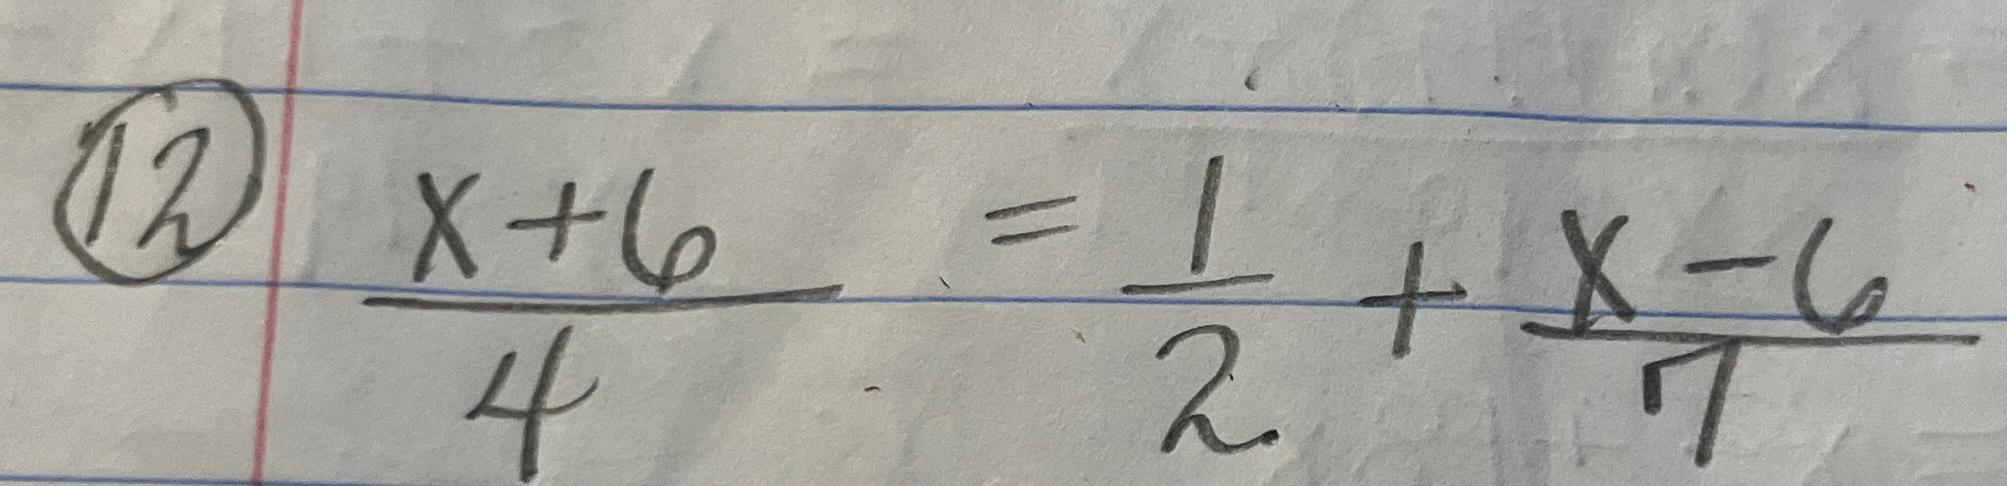 12 (x+6)/4 = 1/2 + (x-6)/7